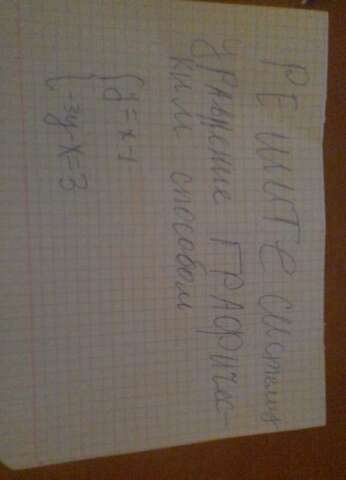 РЕШИТЕ систему
уравнение ГРАФИЧЕС-
ким способом
{y = x - 1
{-3y - x = 3